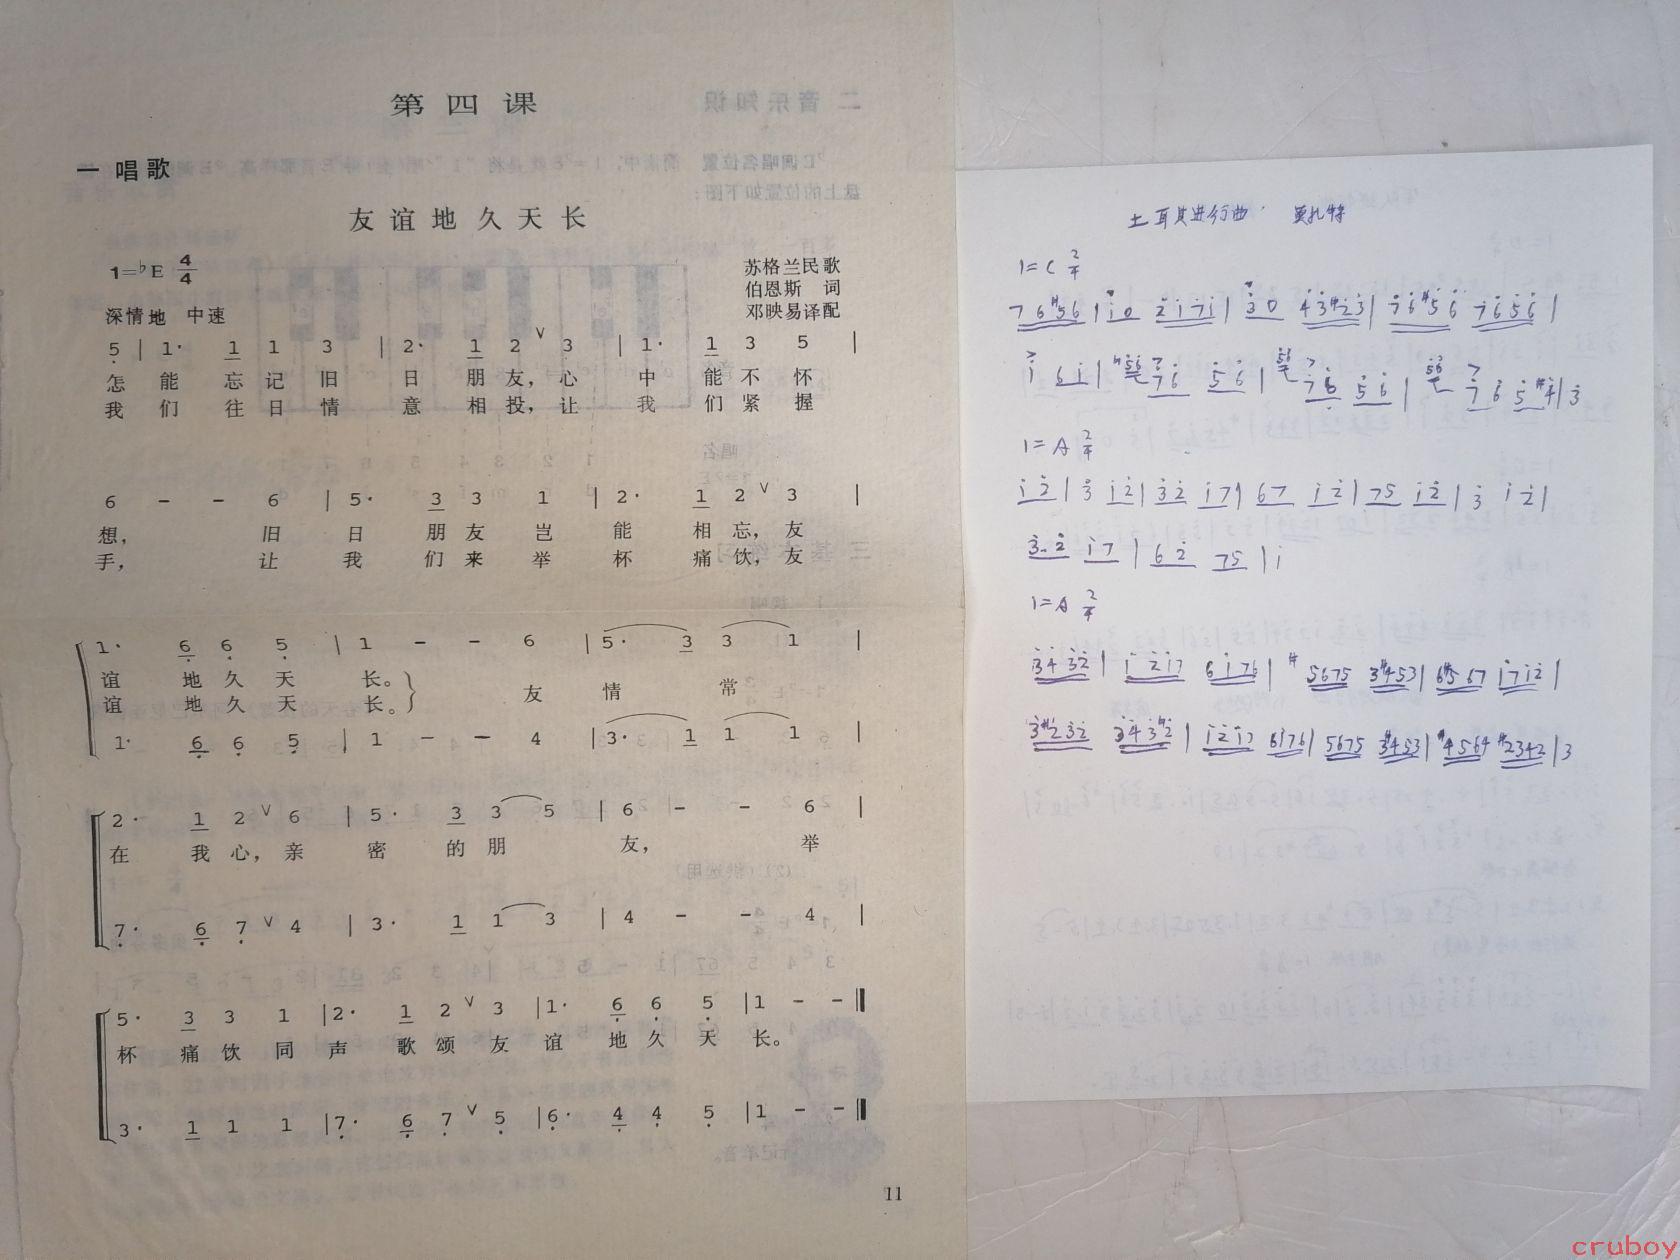 第四课
一 唱歌
友谊地久天长
1=♭E 4/4
苏格兰民歌
伯恩斯 词
邓映易译配
深情地 中速
5̣ | 1· 1 1 3 | 2· 1 2 ∨ 3 | 1· 1 3 5 |
怎 能 忘 记 旧 日 朋 友, 心 中 能 不 怀
我 们 往 日 情 意 相 投, 让 我 们 紧 握
6 - - 6 | 5· 3 3 1 | 2· 1 2 ∨ 3 |
想, 旧 日 朋 友 岂 能 相 忘, 友
手, 让 我 们 来 举 杯 痛 饮, 友
1· 6̣ 6̣ 5̣ | 1 - - 6 | 5· 3 3 1 |
谊 地 久 天 长。 友 情 常
谊 地 久 天 长。
1· 6̣ 6̣ 5̣ | 1 - - 4 | 3· 1 1 1 |
2· 1 2 ∨ 6 | 5· 3 3 5 | 6 - - 6 |
在 我 心, 亲 密 的 朋 友, 举
7̣· 6̣ 7̣ ∨ 4 | 3· 1 1 3 | 4 - - 4 |
5· 3 3 1 | 2· 1 2 ∨ 3 | 1· 6̣ 6̣ 5̣ | 1 - - ‖
杯 痛 饮 同 声 歌 颂 友 谊 地 久 天 长。
3· 1 1 1 | 7̣· 6̣ 7̣ ∨ 5̣ | 6̣· 4̣ 4̣ 5̣ | 1 - - ‖
11
土耳其进行曲 莫扎特
1=C 2/4
7 6 #5 6 | i 0 2̇ i 7 i | 3̇ 0 4̇ 3̇ #2̇ 3̇ | 7̇ 6̇ #5̇ 6̇ 7̇ 6̇ 5̇ 6̇ |
1=A 2/4
i 2̇ | 3̇ i 2̇ | 3̇ 2̇ i 7 | 6 7 i 2̇ | 7 5 i 2̇ | 3̇ i 2̇ |
3̇ 2̇ i 7 | 6 2̇ 7 5 | i
1=A 2/4
cruboy